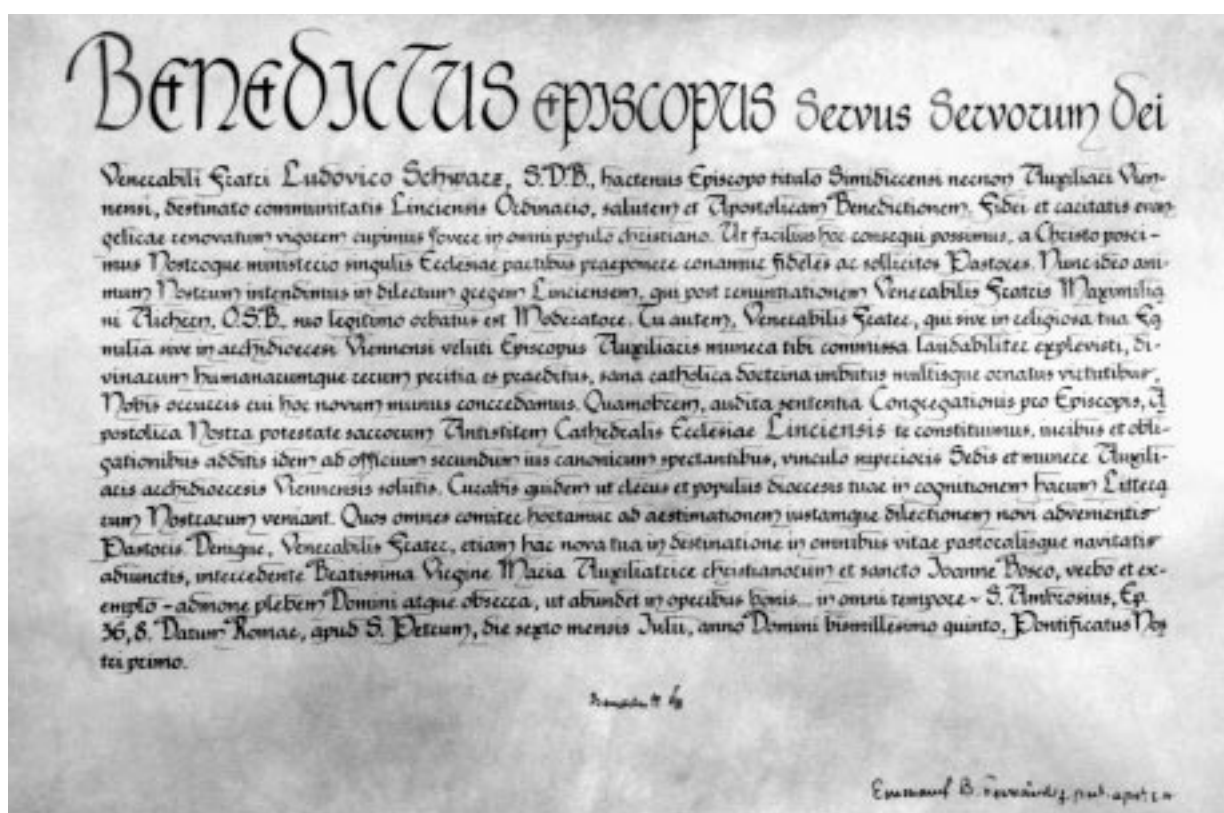 BENEDICTUS EPISCOPUS Servus Servorum Dei
Venerabili Fratri Ludovico Schwarz, S.D.B., hactenus Episcopo titulo Simidiccensi necnon Auxiliari Vien-
nensi, destinato communitatis Linciensis Ordinario, salutem et Apostolicam Benedictionem. Fidei et caritatis evan
gelicae renovatum vigorem cupimus fovere in omni populo christiano. Ut facilius hoc consequi possimus, a Christo posci-
mus Nostroque ministerio singulis Ecclesiae partibus praeponere conamur fideles ac sollicitos Pastores. Nunc ideo ani
mum Nostrum intendimus in dilectum gregem Linciensem, qui post renuntiationem Venerabilis Fratris Maximilia
ni Aichern, O.S.B., suo legitimo orbatus est Moderatore. Tu autem, Venerabilis Frater, qui sive in religiosa tua Fa
milia sive in archidioecesi Viennensi veluti Episcopus Auxiliaris munera tibi commissa laudabiliter explevisti, di-
vinarum humanarumque rerum peritia es praeditus, sana catholica doctrina imbutus multisque ornatus virtutibus,
Nobis occurris cui hoc novum munus concredamus. Quamobrem, audita sententia Congregationis pro Episcopis, A
postolica Nostra potestate sacrorum Antistitem Cathedralis Ecclesiae Linciensis te constituimus, iuribus et obli-
gationibus additis idem ad officium secundum ius canonicum spectantibus, vinculo superioris Sedis et munere Auxili-
aris archidioecesis Viennensis solutis. Curabis quidem ut clerus et populus dioecesis tuae in cognitionem harum Littera
rum Nostrarum veniant. Quos omnes comiter hortamur ad aestimationem iustamque dilectionem novi advenientis
Pastoris. Denique, Venerabilis Frater, etiam hac nova tua in destinatione in omnibus vitae pastoralisque navitatis
adiunctis, intercedente Beatissima Virgine Maria Auxiliatrice christianorum et sancto Joanne Bosco, verbo et ex-
emplo - admone plebem Domini atque obsecra, ut abundet in operibus bonis... in omni tempore - S. Ambrosius, Ep.
36, 8. Datum Romae, apud S. Petrum, die sexto mensis Julii, anno Domini bismillesimo quinto, Pontificatus Nos
tri primo.